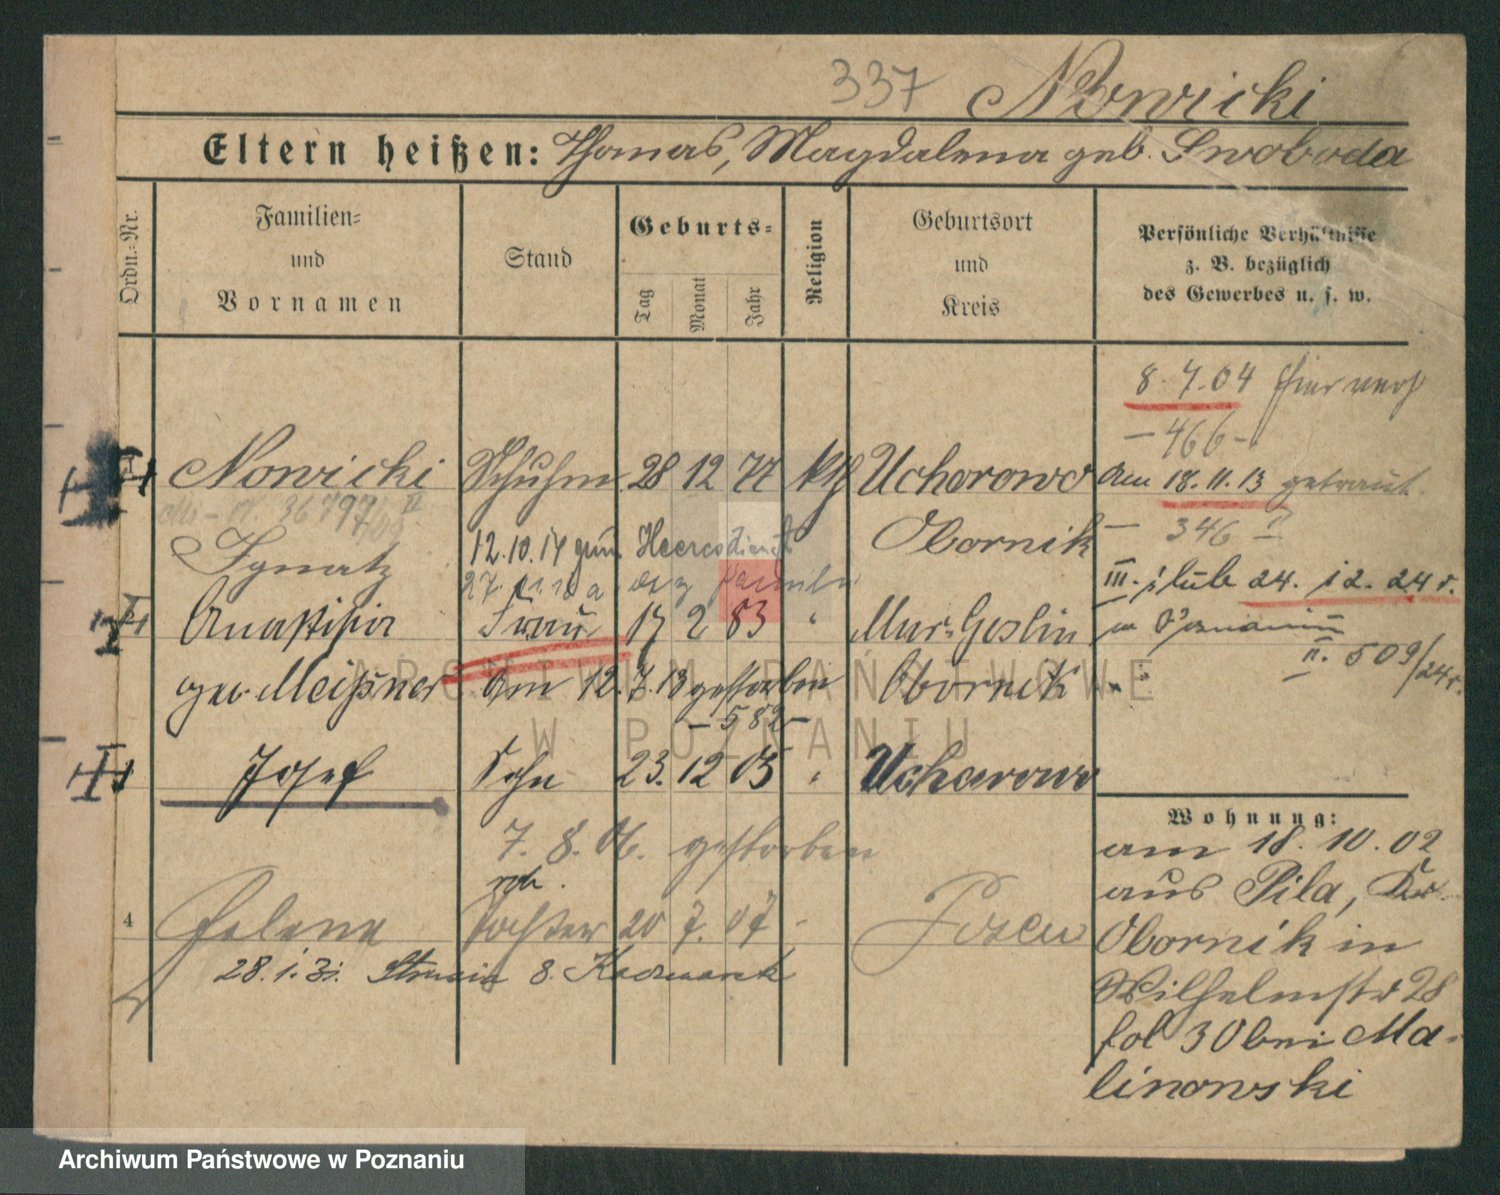 337 Nowicki
Eltern heißen: Thomas, Magdalena geb. Swoboda
Ordn.-Nr.
Familien-
und
Vornamen
Stand
Geburts-
Tag
Monat
Jahr
Religion
Geburtsort
und
Kreis
Persönliche Verhältnisse
z. B. bezüglich
des Gewerbes u. s. w.
8. 7. 04
- 466 -
Nowicki Schuhm. 28 12 77 kth Uchorowo
Am 18. 11. 13 getraut.
36797
Ignatz 12. 10. 14 zum Heeresdienst Obornik
- 346 II
27.
III. ślub 24. 12. 24 r.
Anastasia Frau 17 2 83 " Mur-Goslin
w Poznaniu
II. 509/24 r.
geb Meißner Am 12. 7. 13 gestorben Obornik
- 582 -
Josef Sohn 23. 12 05 " Uchorowo
7. 8. 06. gestorben
Wohnung:
am 18. 10. 02
aus Pila, Kr.
Obornik in
Wilhelmstr 28
fol 30 bei Ma-
linowski
4 Helene Tochter 20 7. 07 " Posen
28. 1. 31. Kaczmarek
ARCHIWUM PAŃSTWOWE
W POZNANIU
Archiwum Państwowe w Poznaniu